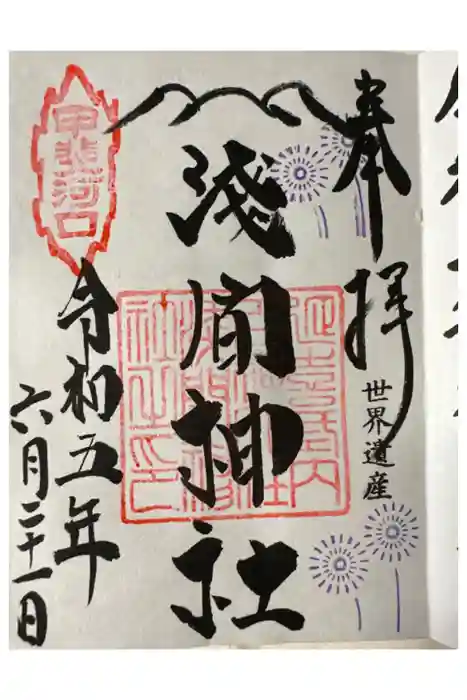 奉拝
世界遺産
淺間神社
甲斐河口
令和五年
六月二十一日